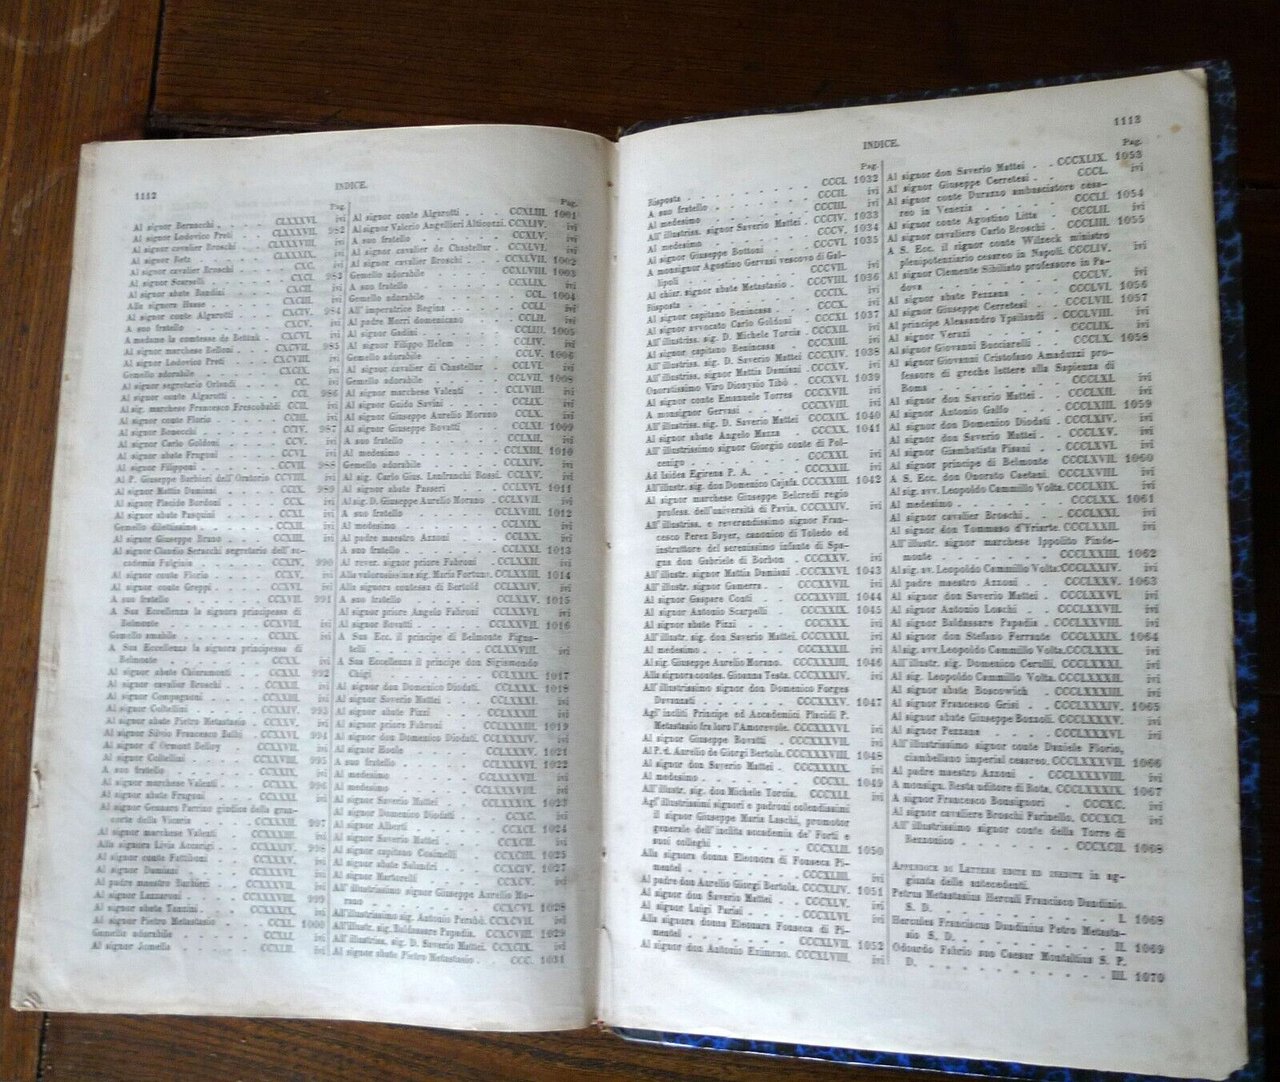 1112
INDICE.
Pag.
Al signor Bernacchi . CLXXXVI. ivi
Al signor Lodovico Preti CLXXXVII. 982
Al signor cavalier Broschi CLXXXVIII. ivi
Al signor CLXXXIX. ivi
Al signor cavalier Broschi CXC. ivi
Al signor Scarselli CXCI. 983
Al signor abate CXCII. ivi
Alla signora Hasse CXCIII. ivi
Al signor conte Algarotti CXCIV. 984
A suo fratello CXCV. ivi
A madama la comtessa de CXCVI. ivi
Al signor marchese Belloni . CXCVII. 985
Al signor Lodovico Preti CXCVIII. ivi
Gemello adorabile CXCIX. ivi
Al signor segretario Orlandi CC. ivi
Al signor conte Algarotti CCI. 986
Al sig. marchese Francesco Frescobaldi CCII. ivi
Al signor conte Florio CCIII. ivi
Al signor Bonecchi CCIV. 987
Al signor Carlo Goldoni CCV. ivi
Al signor abate Frugoni CCVI. ivi
Al signor Filipponi CCVII. 988
Al P. Giuseppe Barbieri dell'Oratorio CCVIII. ivi
Al signor Mattia Damiani CCIX. 989
Al signor Placido Bordoni CCX. ivi
Al signor abate Pasquini CCXI. ivi
Gemello dilettissimo CCXII. ivi
Al signor Giuseppe Bruno CCXIII. ivi
Al signor Claudio Seracchi segretario dell'ac-
cademia Fulginia CCXIV. 990
Al signor conte Florio CCXV. ivi
Al signor conte Greppi CCXVI. ivi
A suo fratello CCXVII. 991
A Sua Eccellenza la signora principessa di
Belmonte CCXVIII. ivi
Gemello amabile CCXIX. ivi
A Sua Eccellenza la signora principessa di
Belmonte CCXX. ivi
Al signor abate Chiaramonti CCXXI. 992
Al signor cavalier Broschi CCXXII. ivi
Al signor Compagnoni ivi
Al signor Coltellini CCXXIV. 993
Al signor abate Pietro Metastasio CCXXV. ivi
Al signor Silvio Francesco Balbi CCXXVI. 994
Al signor d'Ormont Belloy CCXXVII. ivi
Al signor Coltellini CCXXVIII. 995
A suo fratello CCXXIX. ivi
Al signor marchese Valenti CCXXX. 996
Al signor abate Frugoni CCXXXI. ivi
Al signor Gennaro Parrino giudice della gran-
corte della Vicaria CCXXXII. 997
Al signor marchese Valenti CCXXXIII. ivi
Alla signora Livia Accarigi CCXXXIV. 998
Al signor conte CCXXXV. ivi
Al signor Damiani ivi
Al padre maestro Barbieri CCXXXVII. ivi
Al signor CCXXXVIII. 999
Al signor abate CCXXXIX. ivi
Al signor Pietro Metastasio CCXL. 1000
Gemello adorabile CCXLI. ivi
Al signor Jomella CCXLII. ivi
Pag.
Al signor conte Algarotti CCXLIII. 1001
Al signor Valerio Angellieri Alticozzi. CCXLIV. ivi
A suo fratello CCXLV. ivi
Al signor cavalier de Chastellur CCXLVI. ivi
Al signor cavalier Broschi CCXLVII. 1002
Gemello adorabile CCXLVIII. 1003
A suo fratello CCXLIX. ivi
Gemello adorabile CCL. 1004
All'imperatrice Regina CCLI. ivi
Al padre Morri domenicano CCLII. ivi
Al signor Gadini CCLIII. 1005
Al signor Filippo Halem CCLIV. ivi
Gemello adorabile CCLV. 1006
Al signor cavalier di Chastellur CCLVI. ivi
Gemello adorabile CCLVII. 1008
Al signor marchese Valenti CCLVIII. ivi
Al signor Guido Savini CCLIX. ivi
Al signor Giuseppe Aurelio Morano CCLX. ivi
Al signor Giuseppe Bovatti CCLXI. 1009
A suo fratello CCLXII. ivi
Al medesimo CCLXIII. 1010
Gemello adorabile CCLXIV. ivi
Al sig. Carlo Gius. Lanfranchi Rossi. CCLXV. ivi
Al signor abate Passeri CCLXVI. 1011
Al sig. D. Giuseppe Aurelio Morano CCLXVII. ivi
A suo fratello CCLXVIII. 1012
Al medesimo CCLXIX. ivi
Al padre maestro Azzoni CCLXX. ivi
A suo fratello CCLXXI. 1013
Al rever. signor priore Fabroni CCLXXII. ivi
Alla valorosissima sig. Maria Fortuna. CCLXXIII. 1014
Alla signora contessa di Bertold CCLXXIV. ivi
A suo fratello CCLXXV. 1015
Al signor priore Angelo Fabroni CCLXXVI. ivi
Al signor Bovatti CCLXXVII. 1016
A Sua Ecc. il principe di Belmonte Pigna-
telli CCLXXVIII. ivi
A Sua Eccellenza il principe don Sigismondo
Chigi CCLXXIX. 1017
Al signor don Domenico Diodati. CCLXXX. 1018
Al signor Saverio Mattei CCLXXXI. ivi
Al signor abate Pizzi CCLXXXII. ivi
Al signor priore Fabroni CCLXXXIII. 1019
Al signor don Domenico Diodati. CCLXXXIV. ivi
Al signor Hoole CCLXXXV. 1021
A suo fratello CCLXXXVI. 1022
Al medesimo CCLXXXVII. ivi
Al medesimo CCLXXXVIII. ivi
Al signor Saverio Mattei CCLXXXIX. 1023
Al signor Domenico Diodati CCXC. ivi
Al signor Alberti CCXCI. 1024
Al signor Saverio Mattei CCXCII. ivi
Al signor capitano Cosimelli CCXCIII. 1025
Al signor abate Salandri CCXCIV. 1027
Al signor Martorelli CCXCV. ivi
All'illustrissimo signor Giuseppe Aurelio Mo-
rano CCXCVI. 1028
All'illustrissimo sig. Antonio Perabò. CCXCVII. ivi
All'illustriss. sig. Baldassare Papadia. CCXCVIII. 1029
All'illustriss. sig. D. Saverio Mattei. CCXCIX. ivi
Al signor abate Pietro Metastasio . CCC. 1031
1113
INDICE.
Pag.
Risposta CCCI. 1032
A suo fratello CCCII. ivi
Al medesimo CCCIII. ivi
All'illustriss. signor Saverio Mattei CCCIV. 1033
Al medesimo CCCV. 1034
Al signor Giuseppe Bottoni CCCVI. 1035
A monsignor Agostino Gervasi vescovo di Gal-
lipoli CCCVII. ivi
Al chiar. signor abate Metastasio CCCVIII. 1036
Risposta CCCIX. ivi
Al signor capitano Benincasa CCCX. ivi
Al signor avvocato Carlo Goldoni CCCXI. 1037
All'illustriss. sig. D. Michele Torcia CCCXII. ivi
Al signor capitano Benincasa CCCXIII. ivi
All'illustriss. sig. D. Saverio Mattei CCCXIV. 1038
All'illustriss. signor Mattia Damiani CCCXV. ivi
Onoratissimo Viro Dionysio Tibò CCCXVI. 1039
Al signor conte Emanuele Torres CCCXVII. ivi
A monsignor Gervasi CCCXVIII. ivi
All'illustriss. sig. D. Saverio Mattei CCCXIX. 1040
Al signor abate Angelo Mazza CCCXX. 1041
All'illustrissimo signor Giorgio conte di Pol-
cenigo CCCXXI. ivi
Ad Isidea Egirena P. A. CCCXXII. ivi
All'illustr. sig. don Domenico Cajafa. CCCXXIII. 1042
Al signor marchese Giuseppe Belcredi regio
profess. dell'università di Pavia. CCCXXIV. ivi
All'illustriss. e reverendissimo signor Fran-
cesco Perez Bayer, canonico di Toledo ed
instruttore del serenissimo infante di Spa-
gna don Gabriele di Borbon CCCXXV. ivi
All'illustr. signor Mattia Damiani. CCCXXVI. 1043
All'illustr. signor Gamerra CCCXXVII. ivi
Al signor Gaspare Conti CCCXXVIII. 1044
Al signor Antonio Scarpelli CCCXXIX. 1045
Al signor abate Pizzi CCCXXX. ivi
All'illustr. sig. don Saverio Mattei. CCCXXXI. ivi
Al medesimo CCCXXXII. ivi
Al sig. Giuseppe Aurelio Morano. CCCXXXIII. 1046
Alla signora contes. Giovanna Testa. CCCXXXIV. ivi
All'illustrissimo signor don Domenico Forges
Davanzati CCCXXXV. 1047
Agl'incliti Principe ed Accademici Placidi P.
Metastasio fra loro l'Amorevole. CCCXXXVI. ivi
Al signor Giuseppe Bovatti CCCXXXVII. ivi
Al P. d. Aurelio de Giorgi Bertola. CCCXXXVIII. 1048
Al signor don Saverio Mattei . CCCXXXIX. ivi
Al medesimo CCCXL. 1049
All'illustr. sig. don Michele Torcia. CCCXLI. ivi
Agl'illustrissimi signori e padroni colendissimi
il signor Giuseppe Maria Laschi, promotor
generale dell'inclita accademia de' Forti e
suoi colleghi CCCXLII. 1050
Alla signora donna Eleonora di Fonseca Pi-
mentel CCCXLIII. ivi
Al padre don Aurelio Giorgi Bertola. CCCXLIV. 1051
Al signor don Saverio Mattei CCCXLV. ivi
Al signor Luigi Parisi CCCXLVI. ivi
Alla signora donna Eleonora di Fonseca Pi-
mentel CCCXLVII. 1052
Al signor don Antonio Eximeno. CCCXLVIII. ivi
Pag.
Al signor don Saverio Mattei . . CCCXLIX. 1053
Al signor Giuseppe Cerretesi . CCCL. ivi
Al signor conte Durazzo ambasciatore cesa-
reo in Venezia CCCLI. 1054
Al signor conte Agostino Litta CCCLII. ivi
Al signor cavaliere Carlo Broschi CCCLIII. 1055
A S. Ecc. il signor conte Wilseck ministro
plenipotenziario cesareo in Napoli. CCCLIV. ivi
Al signor Clemente Sibiliato professore in Pa-
dova CCCLV. ivi
Al signor abate Pezzana CCCLVI. 1056
Al signor Giuseppe Cerretesi CCCLVII. 1057
Al principe Alessandro Ypsilandi CCCLVIII. ivi
Al signor Verazi CCCLIX. ivi
Al signor Giovanni Bucciarelli CCCLX. 1058
Al signor Giovanni Cristofano Amaduzzi pro-
fessore di greche lettere alla Sapienza di
Roma CCCLXI. ivi
Al signor don Saverio Mattei CCCLXII. ivi
Al signor Antonio Galfo CCCLXIII. 1059
Al signor don Domenico Diodati CCCLXIV. ivi
Al signor don Saverio Mattei CCCLXV. ivi
Al signor Giambatista Pisani CCCLXVI. ivi
Al signor principe di Belmonte CCCLXVII. 1060
A S. Ecc. don Onorato Caetani. CCCLXVIII. ivi
Al sig. avv. Leopoldo Cammillo Volta. CCCLXIX. ivi
Al medesimo CCCLXX. 1061
Al signor cavalier Broschi CCCLXXI. ivi
Al signor don Tommaso d'Yriarte. CCCLXXII. ivi
All'illustr. signor marchese Ippolito Pinde-
monte CCCLXXIII. 1062
Al sig. av. Leopoldo Cammillo Volta. CCCLXXIV. ivi
Al padre maestro Azzoni CCCLXXV. 1063
Al signor don Saverio Mattei CCCLXXVI. ivi
Al signor Antonio Loschi CCCLXXVII. ivi
Al signor Baldassare Papadia CCCLXXVIII. ivi
Al signor don Stefano Ferrante CCCLXXIX. 1064
Al sig. avv. Leopoldo Cammillo Volta. CCCLXXX. ivi
All'illustriss. sig. Domenico Cerulli. CCCLXXXI. ivi
Al sig. Leopoldo Cammillo Volta. CCCLXXXII. ivi
Al signor abate Boscowich CCCLXXXIII. ivi
Al signor Francesco Grisi CCCLXXXIV. 1065
Al signor abate Giuseppe Bozzoli. CCCLXXXV. ivi
Al signor Pezzana CCCLXXXVI. ivi
All'illustrissimo signor conte Daniele Florio,
ciambellano imperial cesareo. CCCLXXXVII. 1066
Al padre maestro Azzoni CCCLXXXVIII. ivi
A monsig. Resta uditore di Rota. CCCLXXXIX. 1067
A signor Francesco Bonsignori . CCCXC. ivi
Al signor cavaliere Broschi Farinello. CCCXCI. ivi
All'illustrissimo signor conte della Torre di
Rezzonico CCCXCII. 1068
APPENDICE DI LETTERE EDITE ED INEDITE in ag-
giunta delle antecedenti.
Petrus Metastasius Herculi Francisco Dandinio.
S. D. I. 1068
Hercules Franciscus Dandinius Petro Metasta-
sio S. D. II. 1069
Odoardo Fabrio suo Caesar Montaltius S. P.
D. III. 1070